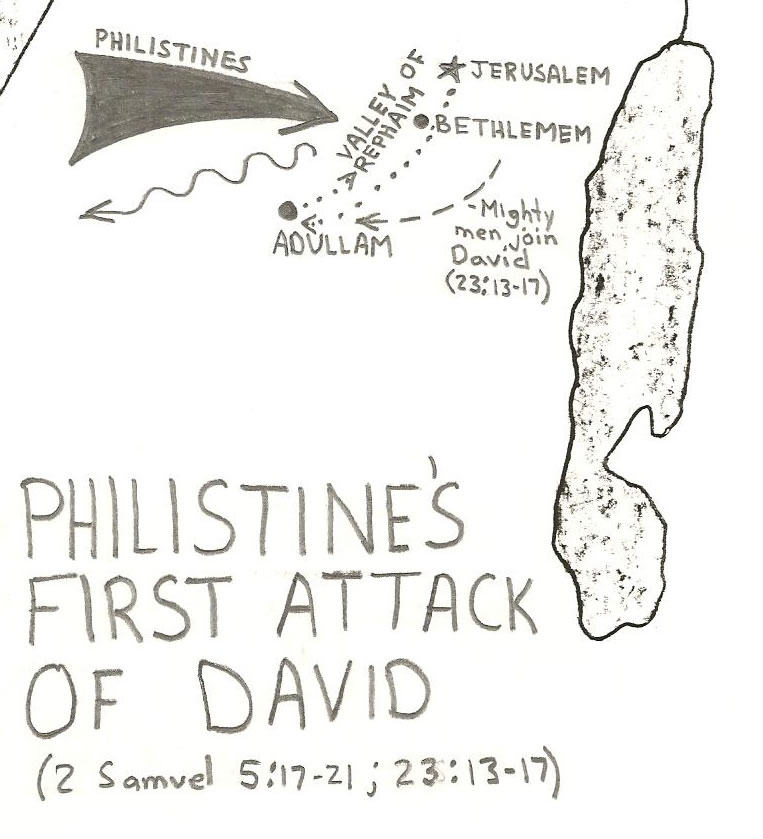 PHILISTINES
VALLEY OF
REPHAIM
JERUSALEM
BETHLEMEM
ADULLAM
-Mighty
men join
David
(23:13-17)
PHILISTINE'S
FIRST ATTACK
OF DAVID
(2 Samuel 5:17-21; 23:13-17)